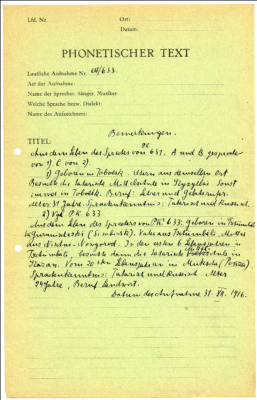 Lfd. Nr. Ort:
Datum:
PHONETISCHER TEXT
Lautliche Aufnahme Nr. 633
Art der Aufnahme:
Name des Sprecher, Sänger, Musiker:
Welche Sprache bezw. Dialekt:
Name des Aufzeichners:
Bemerkungen.
TITEL:
Aus dem Leben des Sprechers von 631. A und B gesprochen
von 1) C von 2).
1) Geboren in Tobolsk. Eltern aus demselben Ort
Besuchte die tatarische Mittelschule in Sonst
immer in Tobolsk. Beruf:
Alter 31 Jahre. Sprachkenntnis: Tatarisch und Russisch.
2) Vgl. P.K. 633
Aus dem Leben des Sprechers von P.K. 633: Geboren in
Vater aus Mutter
aus Nischni-Nowgorod. In den ersten 6 Lebensjahren in
besuchte dann die tatarische
in Kazan. Vom 20ten Lebensjahre an in
Sprachkenntnis: Tatarisch und Russisch. Alter
24 Jahre, Beruf: Landwirt.
Datum der Aufnahme 31. XII. 1916.